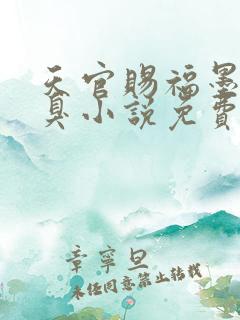 天官赐福墨
真小说免费
章寧旦
未经同意禁止转载